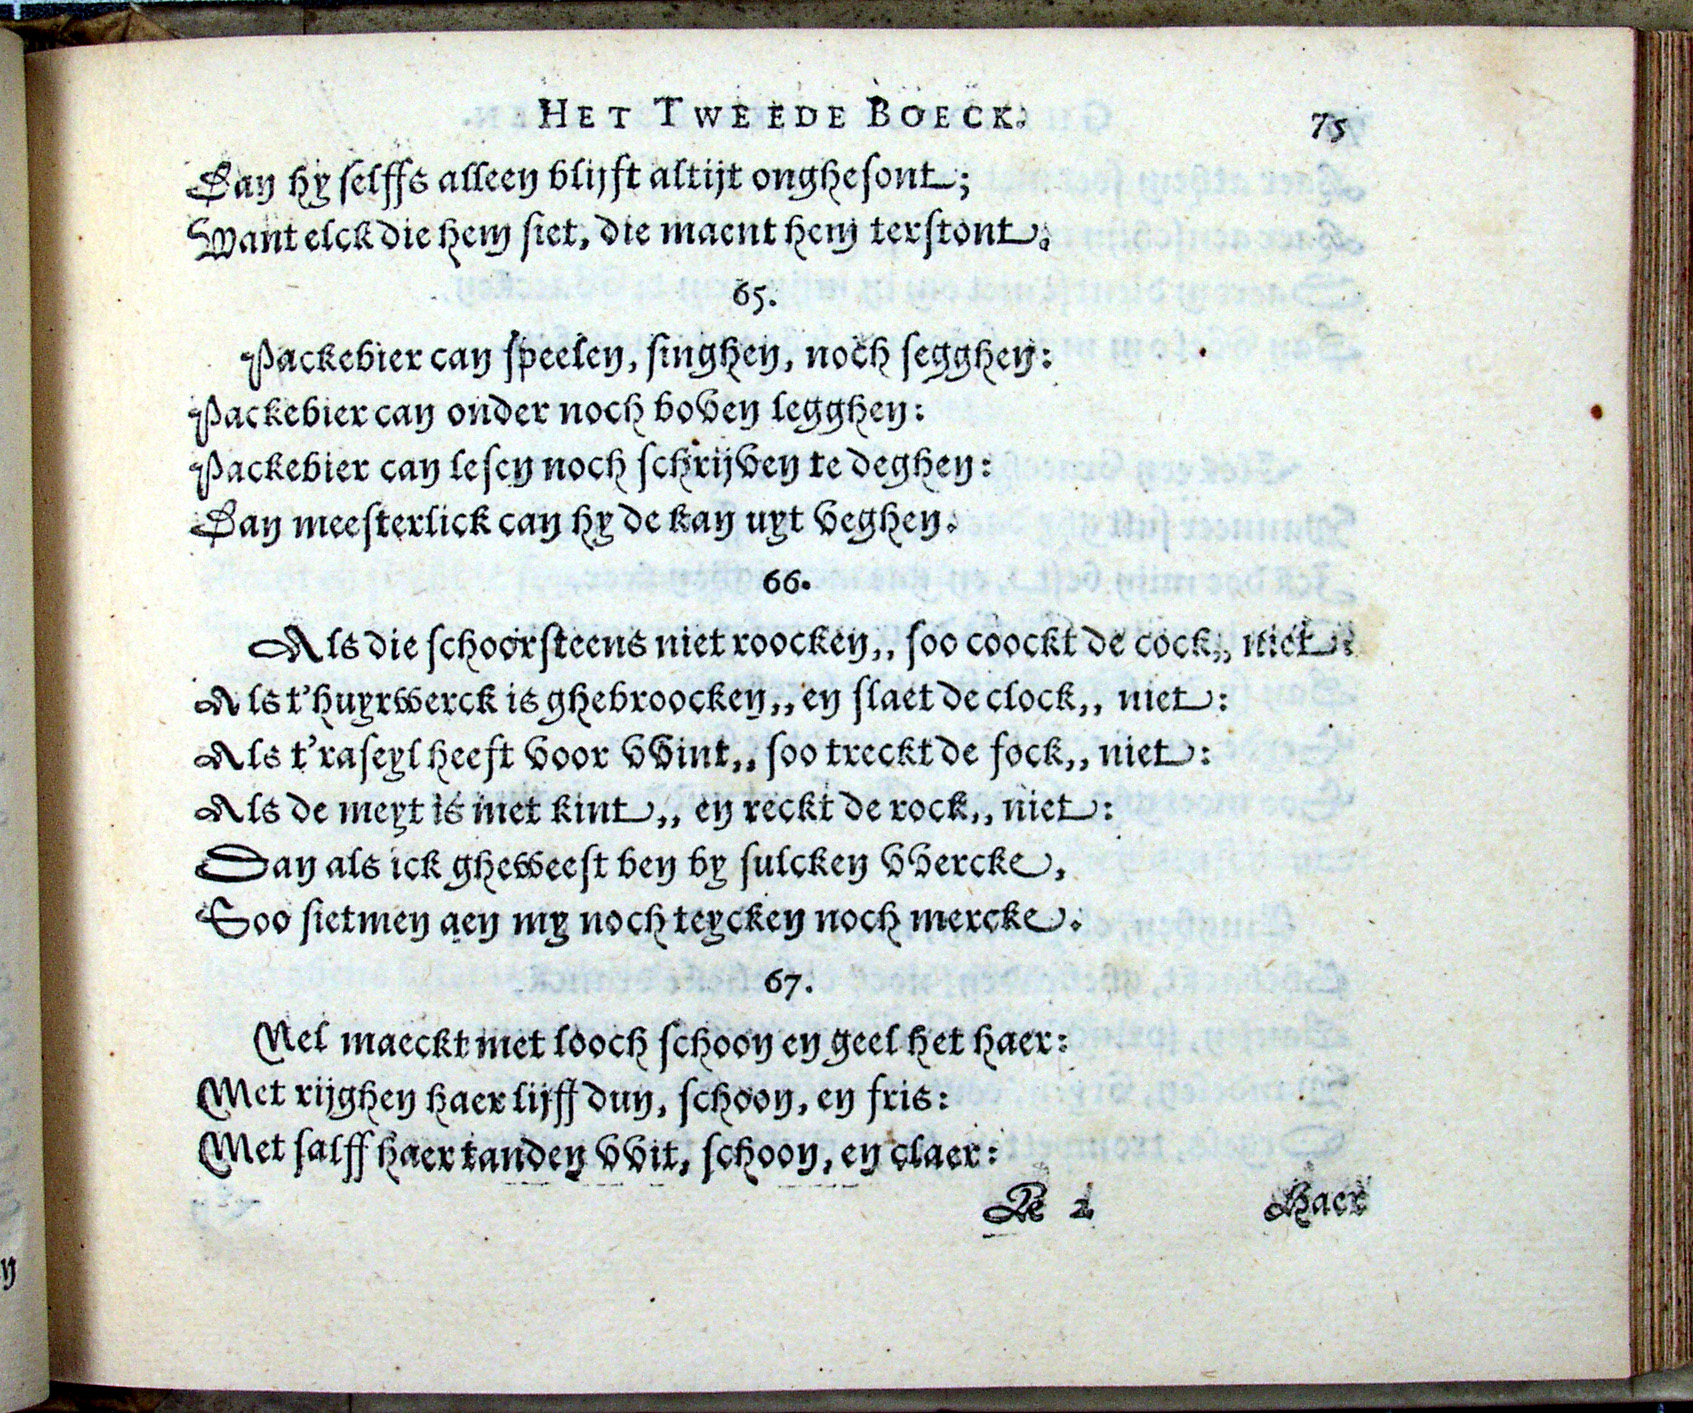 HET TWEEDE BOECK. 75
Dan hy selffs alleen blijft altijt onghesont;
Want elck die hem siet, die maent hem terstont.
65.
Packebier can speelen, singhen, noch segghen:
Packebier can onder noch boven legghen:
Packebier can lesen noch schrijven te deghen:
Dan meesterlick can hy de kan uyt veghen.
66.
Als die schoorsteens niet roocken,, soo coockt de cock,, niet:
Als t'huyrwerck is ghebroocken,, en slaet de clock,, niet:
Als t'raseyl heeft voor vvint,, soo treckt de fock,, niet:
Als de meyt is met kint,, en reckt de rock,, niet:
Dan als ick gheweest ben by sulcken vvercke,
Soo sietmen aen my noch teycken noch mercke.
67.
Nel maeckt met looch schoon en geel het haer:
Met rijghen haer lijff dun, schoon, en fris:
Met salff haer tanden vvit, schoon, en claer:
2 Haer